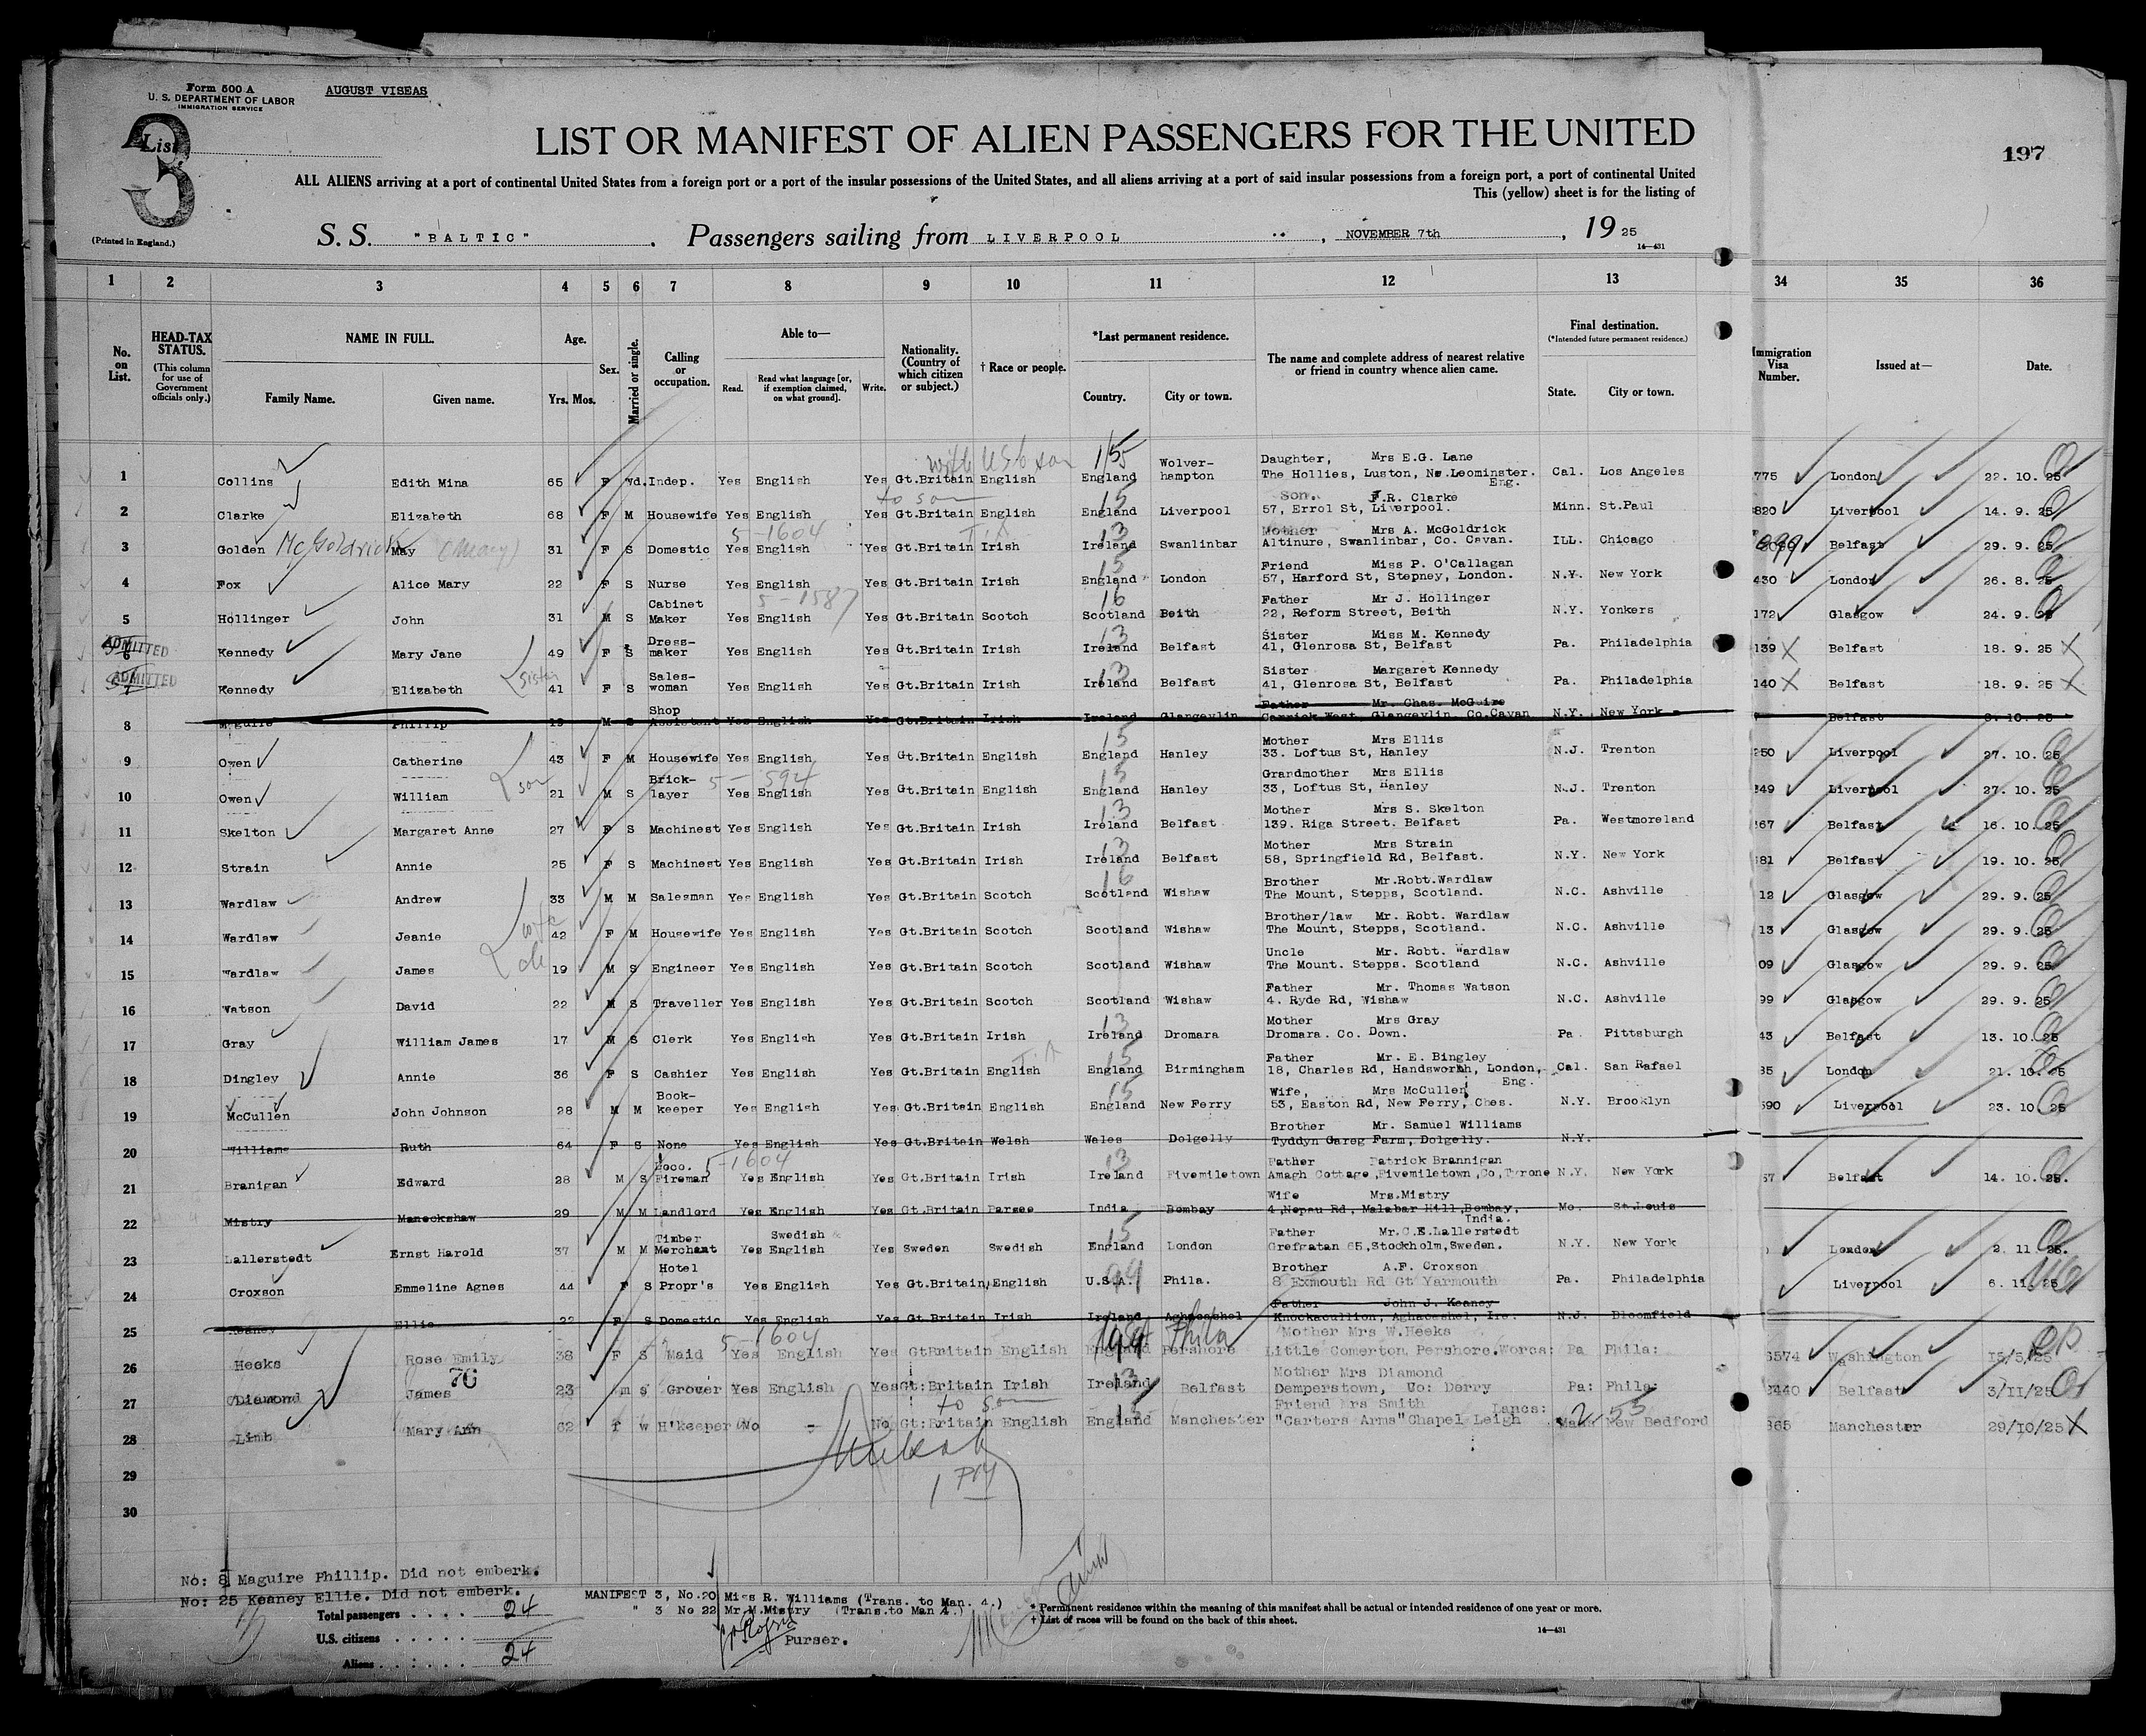 Form 500 A
U. S. DEPARTMENT OF LABOR
IMMIGRATION SERVICE
AUGUST VISEAS
List
3
(Printed in England.)
LIST OR MANIFEST OF ALIEN PASSENGERS FOR THE UNITED
197
ALL ALIENS arriving at a port of continental United States from a foreign port or a port of the insular possessions of the United States, and all aliens arriving at a port of said insular possessions from a foreign port, a port of continental United
This (yellow) sheet is for the listing of
S. S. "BALTIC". Passengers sailing from LIVERPOOL, NOVEMBER 7th, 1925
14—431
1 2 3 4 5 6 7 8 9 10 11 12 13 34 35 36
No. on List.
HEAD-TAX STATUS.
(This column for use of Government officials only.)
NAME IN FULL.
Family Name. Given name.
Age.
Yrs. Mos.
Sex.
Married or single.
Calling or occupation.
Able to—
Read. Read what language [or, if exemption claimed, on what ground]. Write.
Nationality. (Country of which citizen or subject.)
† Race or people.
*Last permanent residence.
Country. City or town.
The name and complete address of nearest relative or friend in country whence alien came.
Final destination.
(*Intended future permanent residence.)
State. City or town.
Immigration Visa Number.
Issued at—
Date.
15
1 Collins Edith Mina 65 F Wd. Indep. Yes English Yes Gt.Britain English England Wolver-hampton Daughter, Mrs E.G. Lane The Hollies, Luston, Nr.Leominster. Eng. Cal. Los Angeles 775 London 22. 10. 25
to son 15
2 Clarke Elizabeth 68 F M Housewife Yes English Yes Gt.Britain English England Liverpool Son. F.R. Clarke 57, Errol St, Liverpool. Minn. St.Paul 820 Liverpool 14. 9. 25
5-1604 13
3 Golden McGoldrick May (Mary) 31 F S Domestic Yes English Yes Gt.Britain Irish Ireland Swanlinbar Mother Mrs A. McGoldrick Altinure, Swanlinbar, Co. Cavan. ILL. Chicago Belfast 29. 9. 25
15
4 Fox Alice Mary 22 F S Nurse Yes English Yes Gt.Britain Irish England London Friend Miss P. O'Callagan 57, Harford St, Stepney, London. N.Y. New York 430 London 26. 8. 25
5-1587 16
5 Hollinger John 31 M S Cabinet Maker Yes English Yes Gt.Britain Scotch Scotland Beith Father Mr J. Hollinger 22, Reform Street, Beith N.Y. Yonkers 172 Glasgow 24. 9. 25
ADMITTED 13
6 Kennedy Mary Jane 49 F S Dress-maker Yes English Yes Gt.Britain Irish Ireland Belfast Sister Miss M. Kennedy 41, Glenrosa St, Belfast Pa. Philadelphia 139 X Belfast 18. 9. 25 X
ADMITTED sister 13
7 Kennedy Elizabeth 41 F S Sales-woman Yes English Yes Gt.Britain Irish Ireland Belfast Sister Margaret Kennedy 41, Glenrosa St, Belfast Pa. Philadelphia 140 X Belfast 18. 9. 25 X
8 Maguire Phillip 19 M S Shop Assistant Yes English Yes Gt.Britain Irish Ireland Glangevlin Father Mr. Chas. McGuire Carrick West, Glangevlin, Co.Cavan N.Y. New York Belfast 10. 25
15
9 Owen Catherine 43 F M Housewife Yes English Yes Gt.Britain English England Hanley Mother Mrs Ellis 33. Loftus St, Hanley N.J. Trenton 250 Liverpool 27. 10. 25
son 5-594 15
10 Owen William 21 M S Brick-layer Yes English Yes Gt.Britain English England Hanley Grandmother Mrs Ellis 33, Loftus St, Hanley N.J. Trenton 349 Liverpool 27. 10. 25
13
11 Skelton Margaret Anne 27 F S Machinest Yes English Yes Gt.Britain Irish Ireland Belfast Mother Mrs S. Skelton 139. Riga Street. Belfast Pa. Westmoreland 367 Belfast 16. 10. 25
13
12 Strain Annie 25 F S Machinest Yes English Yes Gt.Britain Irish Ireland Belfast Mother Mrs Strain 58, Springfield Rd, Belfast. N.Y. New York 381 Belfast 19. 10. 25
16
13 Wardlaw Andrew 33 M M Salesman Yes English Yes Gt.Britain Scotch Scotland Wishaw Brother Mr.Robt.Wardlaw The Mount, Stepps, Scotland. N.C. Ashville 12 Glasgow 29. 9. 25
wife
14 Wardlaw Jeanie 42 F M Housewife Yes English Yes Gt.Britain Scotch Scotland Wishaw Brother/law Mr. Robt. Wardlaw The Mount, Stepps, Scotland. N.C. Ashville 13 Glasgow 29. 9. 25
15 Wardlaw James 19 M S Engineer Yes English Yes Gt.Britain Scotch Scotland Wishaw Uncle Mr. Robt. Wardlaw The Mount. Stepps. Scotland N.C. Ashville 09 Glasgow 29. 9. 25
16 Watson David 22 M S Traveller Yes English Yes Gt.Britain Scotch Scotland Wishaw Father Mr. Thomas Watson 4. Ryde Rd, Wishaw N.C. Ashville 99 Glasgow 29. 9. 25
13
17 Gray William James 17 M S Clerk Yes English Yes Gt.Britain Irish Ireland Dromara Mother Mrs Gray Dromara. Co. Down. Pa Pittsburgh 43 Belfast 13. 10. 25
15
18 Dingley Annie 36 F S Cashier Yes English Yes Gt.Britain English England Birmingham Father Mr. E. Bingley 18, Charles Rd, Handsworth, London, Eng. Cal. San Rafael 35 London 21. 10. 25
15
19 McCullen John Johnson 28 M M Book-keeper Yes English Yes Gt.Britain English England New Ferry Wife, Mrs McCullen 53, Easton Rd, New Ferry, Ches. N.Y. Brooklyn 590 Liverpool 23. 10. 25
20 Williams Ruth 64 F S None Yes English Yes Gt.Britain Welsh Wales Dolgelly Brother Mr. Samuel Williams Tyddyn Gareg Farm, Dolgelly. N.Y.
5-1604 13
21 Branigan Edward 28 M S Loco. Fireman Yes English Yes Gt.Britain Irish Ireland Fivemiletown Father Patrick Brannigan Amagh Cottage,Fivemiletown,Co,Tyrone N.Y. New York 57 Belfast 14. 10. 25.
22 Mistry Maneckshaw 29 M M Landlord Yes English Yes Gt.Britain Parsee India Bombay Wife Mrs.Mistry 4,Nepau Rd, Malabar Hill,Bombay, India. Mo. St.Louis
15
23 Lallerstedt Ernst Harold 37 M M Timber Merchant Yes Swedish & English Yes Sweden Swedish England London Father Mr.C.E.Lallerstedt Grefgatan 65,Stockholm,Sweden. N.Y. New York London 2. 11. 25.
99
24 Croxson Emmeline Agnes 44 F S Hotel Propr's Yes English Yes Gt.Britain English U.S.A. Phila. Brother A.F. Croxson 8 Exmouth Rd Gt Yarmouth Pa. Philadelphia Liverpool 6. 11. 25
25 Keaney Ellie 22 F S Domestic Yes English Yes Gt.Britain Irish Ireland Aghacashel Father John J. Keaney Knockacullion, Aghacashel, Ire. N.J. Bloomfield
5-1604 Phila
26 Heeks Rose Emily 38 F S Maid Yes English Yes GtBritain English England Pershore Mother Mrs W.Heeks Little Comerton Pershore.Worcs: Pa Phila: 3574 Washington 15/5/25
76 13
27 Diamond James 23 m s Grover Yes English Yes Gt:Britain Irish Ireland Belfast Mother Mrs Diamond Demperstown, Co: Derry Pa: Phila: 3440 Belfast 3/11/25
to son
28 Limb Mary Ann 62 f w H'keeper No - No Gt:Britain English England Manchester Friend Mrs Smith "Carters Arms" Chapel Leigh Lancs: Mass New Bedford 365 Manchester 29/10/25 X
29
30
No: 8 Maguire Phillip. Did not emberk.
No: 25 Keaney Ellie. Did not emberk.
MANIFEST 3, No.20 Miss R. Williams (Trans. to Man. 4.)
" 3 No 22 Mr.M.Mistry (Trans.to Man 4.)
Purser.
Total passengers . . . . 24
U.S. citizens . . . . .
Aliens . . . . . . 24
* Permanent residence within the meaning of this manifest shall be actual or intended residence of one year or more.
† List of races will be found on the back of this sheet.
14—431